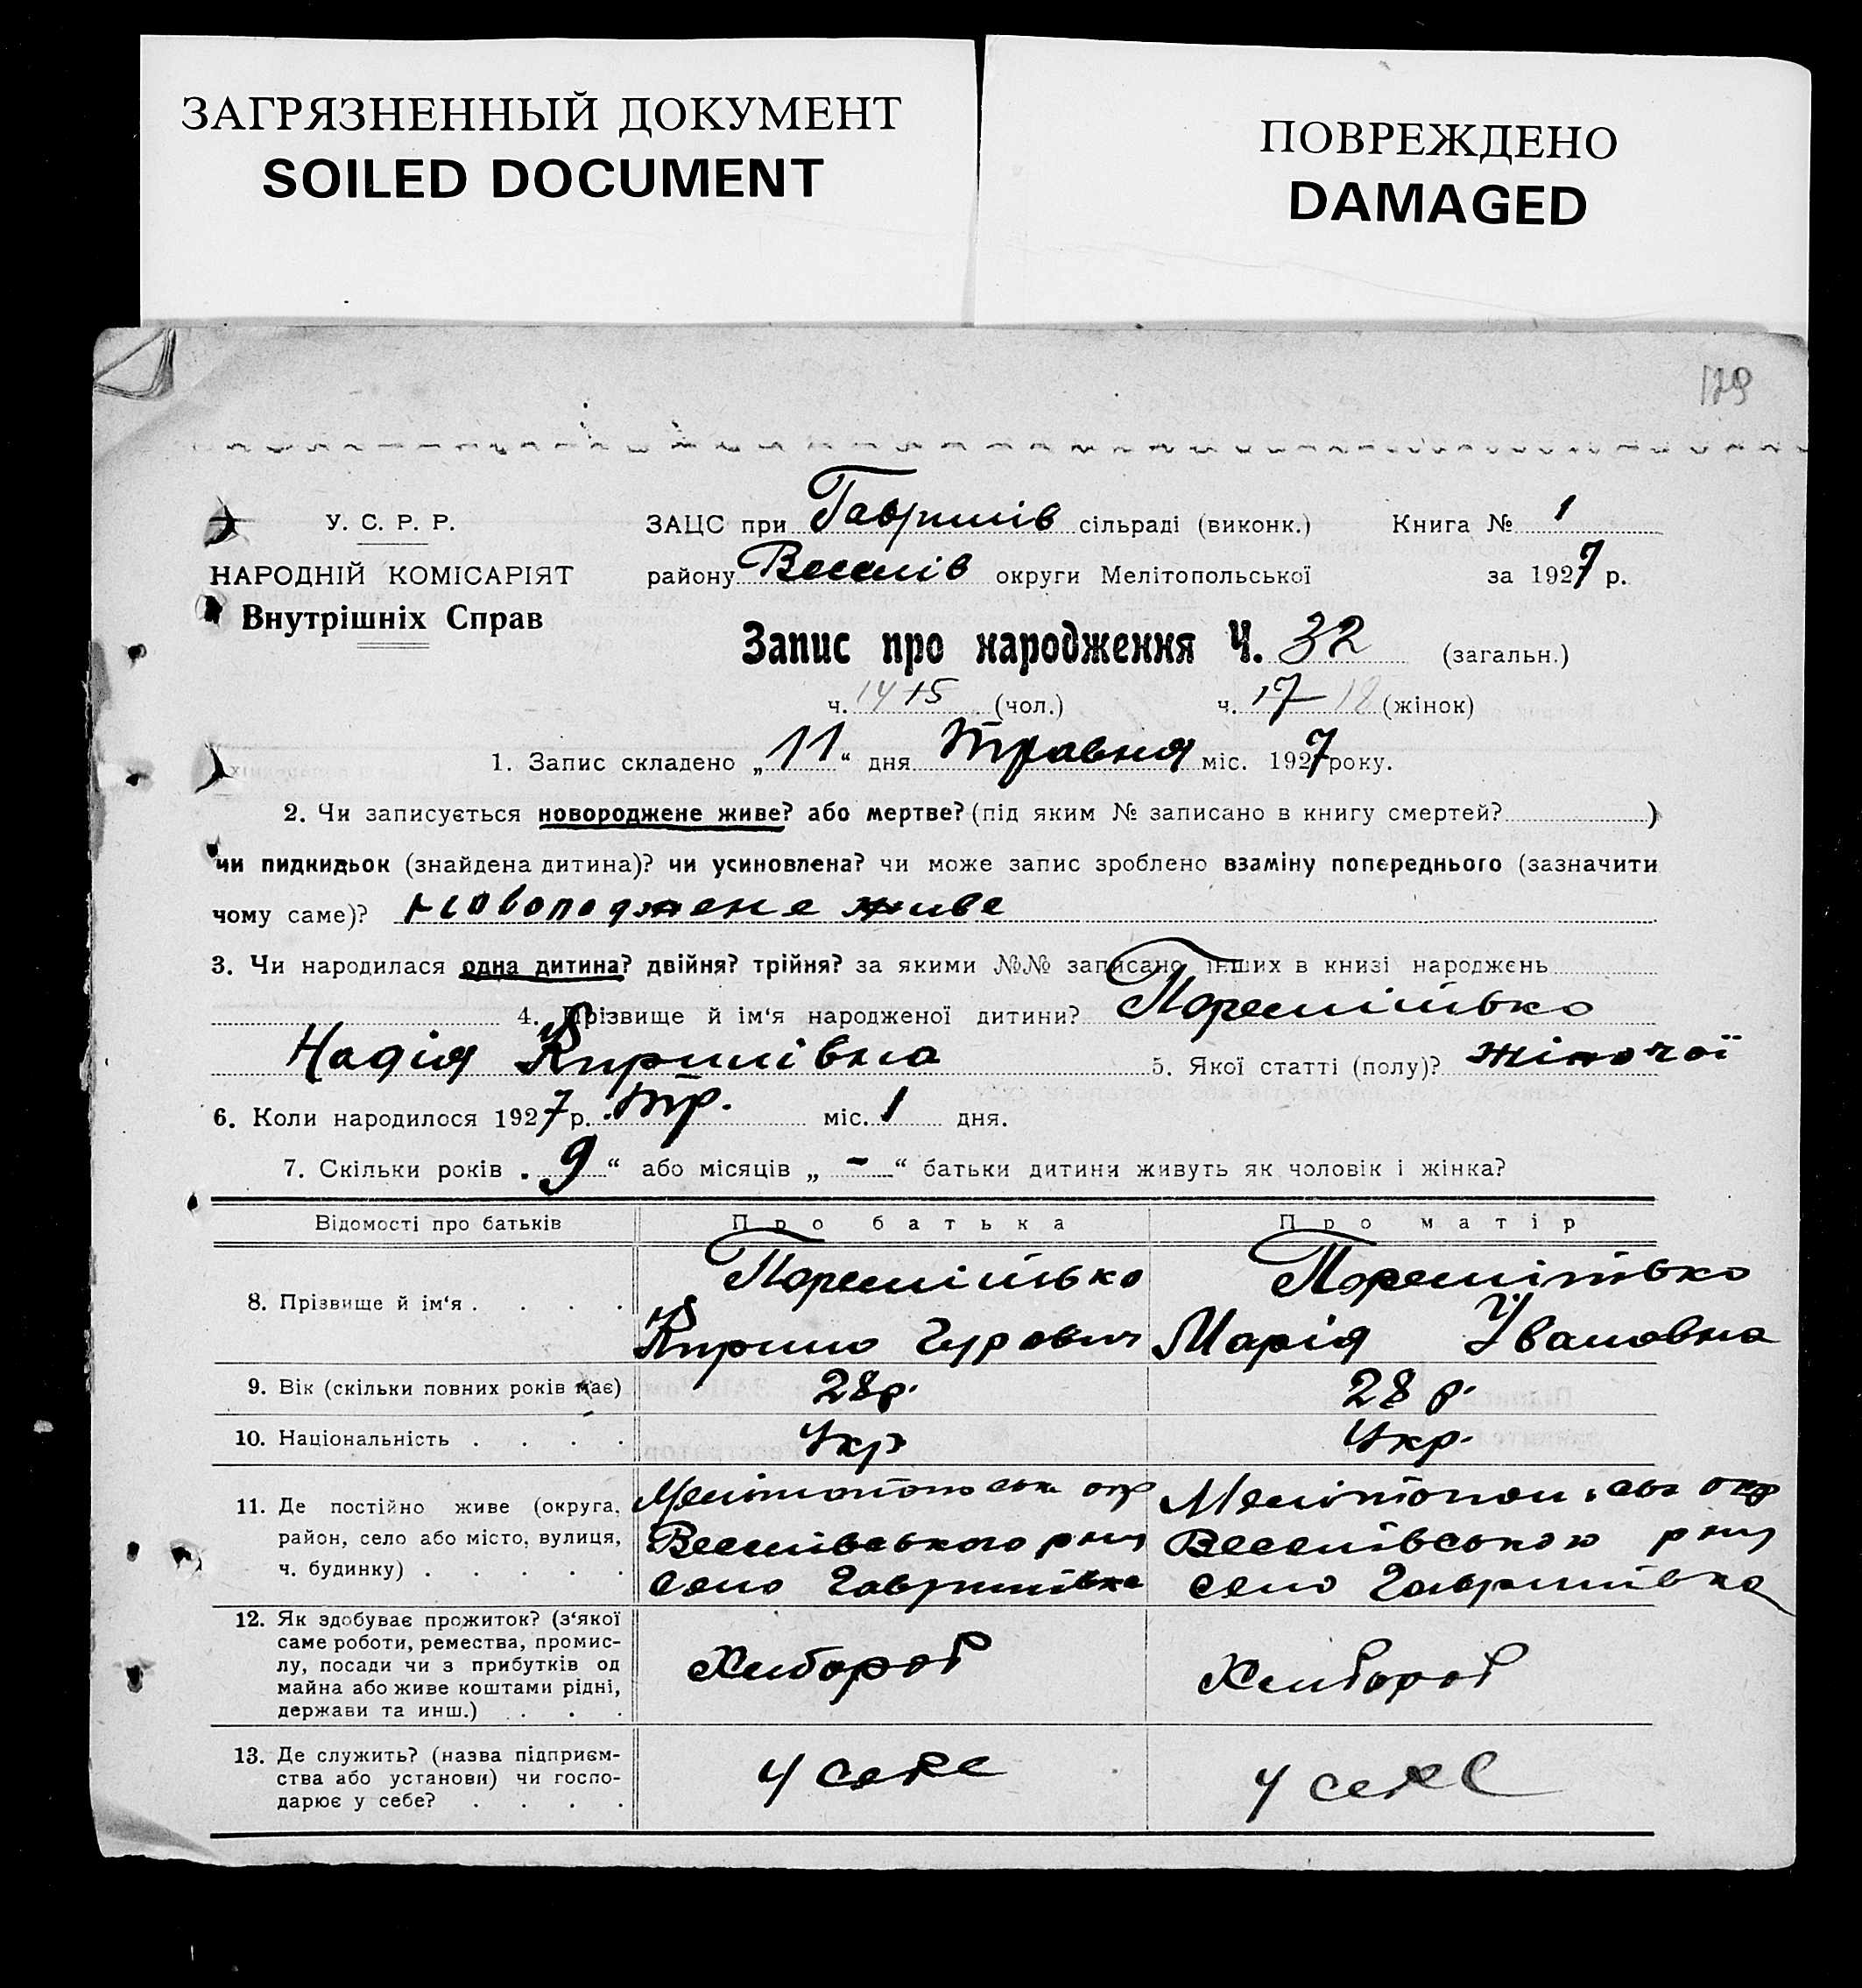 ЗАГРЯЗНЕННЫЙ ДОКУМЕНТ
SOILED DOCUMENT
ПОВРЕЖДЕНО
DAMAGED
179
У. С. Р. Р.
НАРОДНІЙ КОМІСАРІЯТ
Внутрішніх Справ
ЗАЦС при Гаврилів сільраді (виконк.) Книга № 1
району Веселів округи Мелітопольської за 1927 р.
Запис про народження Ч. 32 (загальн.)
ч. 14 15 (чол.) ч. 17 18 (жінок)
1. Запис складено „11“ дня травня міс. 1927 року.
2. Чи записується новороджене живе? або мертве? (під яким № записано в книгу смертей? )
чи пидкидьок (знайдена дитина)? чи усиновлена? чи може запис зроблено взаміну попереднього (зазначити
чому саме)? живе
3. Чи народилася одна дитина? двійня? трійня? за якими №№ записано інших в книзі народжень
4. Прізвище й ім‘я народженої дитини?
Надія Кирилівна 5. Якої статті (полу)? жіночої
6. Коли народилося 1927 р. тр. міс. 1 дня.
7. Скільки років „9“ або місяців „ - “ батьки дитини живуть як чоловік і жінка?
Відомості про батьків Про батька Про матір
8. Прізвище й ім‘я . . . .
Кирило Гурович Марія Івановна
9. Вік (скільки повних років має) 28 р. 28 р.
10. Національність . . . . Укр Укр.
11. Де постійно живе (округа,
район, село або місто, вулиця,
ч. будинку) . . . . .
Веселівського р-ну Веселівського р-ну
село Гаврилівка село Гаврилівка
12. Як здобуває прожиток? (з‘якої
саме роботи, ремества, промис-
лу, посади чи з прибутків од
майна або живе коштами рідні,
держави та инш.) . . .
Хлібороб Хлібороб
13. Де служить? (назва підприєм-
ства або установи) чи госпо-
дарює у себе? . . . .
У себе У себе